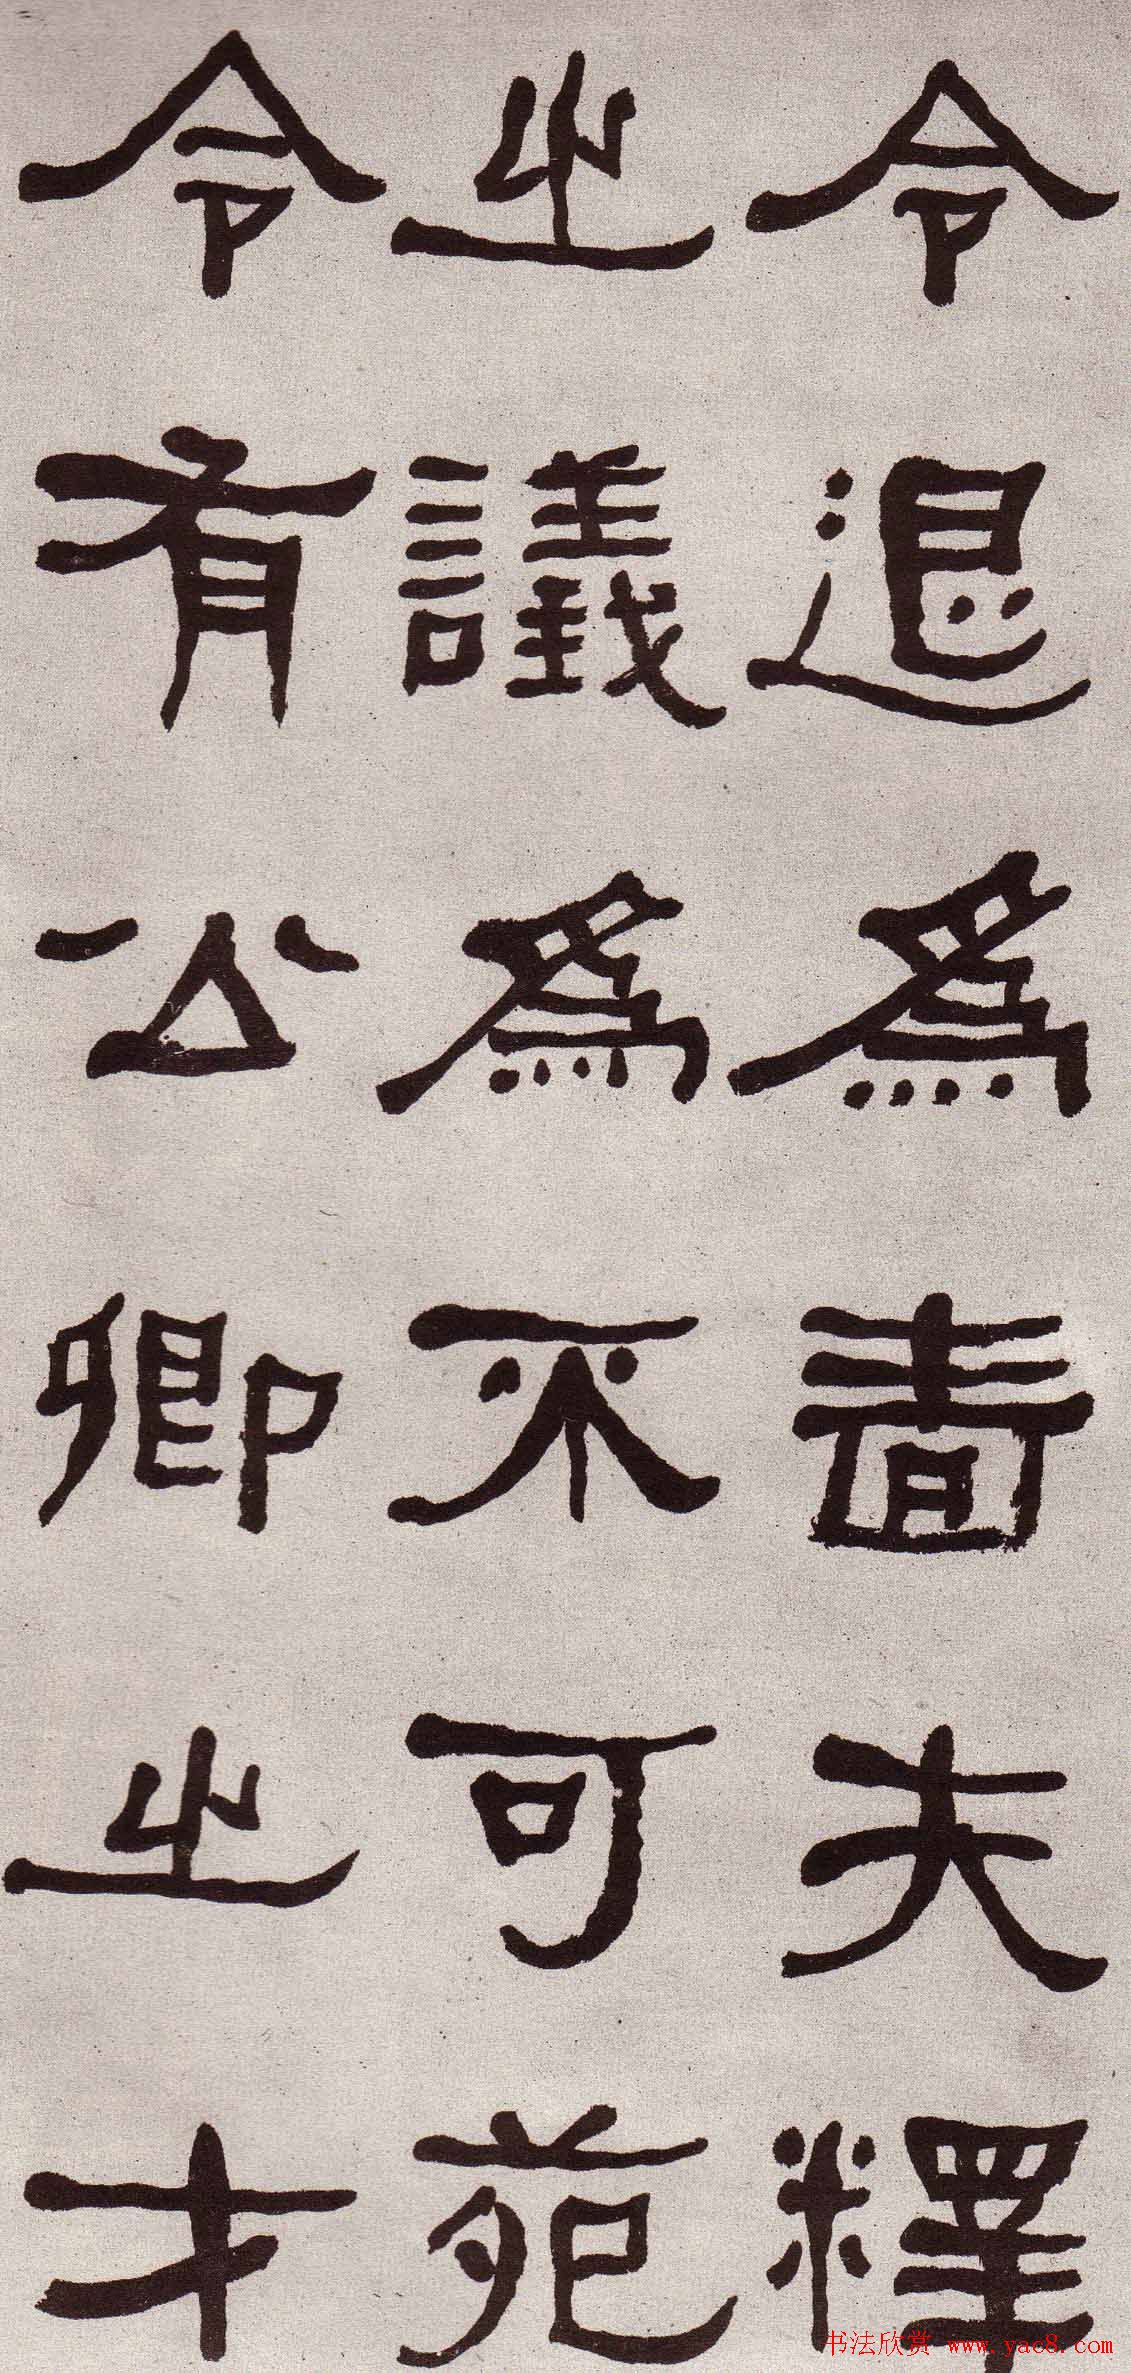 令退為嗇夫釋
之議為不可苑
令有公卿之才
书法欣赏 www.yac8.com